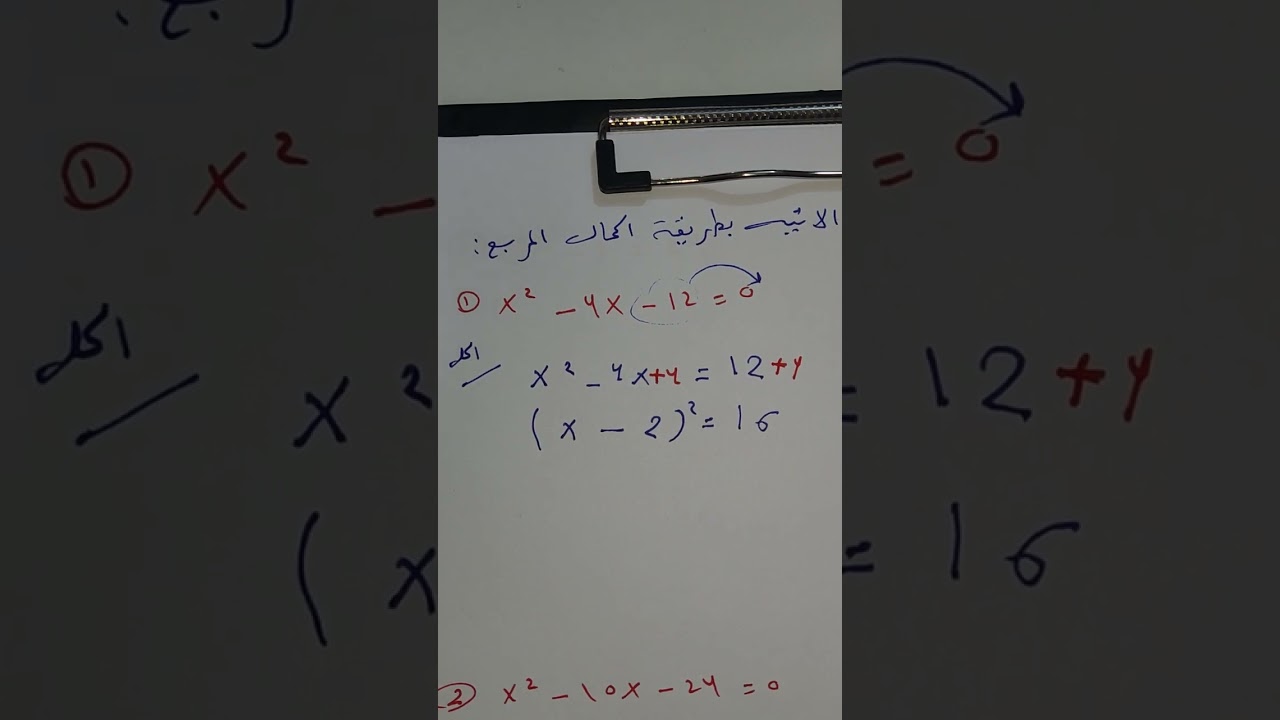 الاتية بطريقة اكمال المربع:
① x² - 4x - 12 = 0
الحل
x² - 4x + 4 = 12 + 4
(x - 2)² = 16
② x² - 10x - 24 = 0